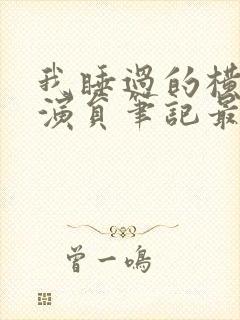 我睡過的橫
演員筆記最
曾一鳴